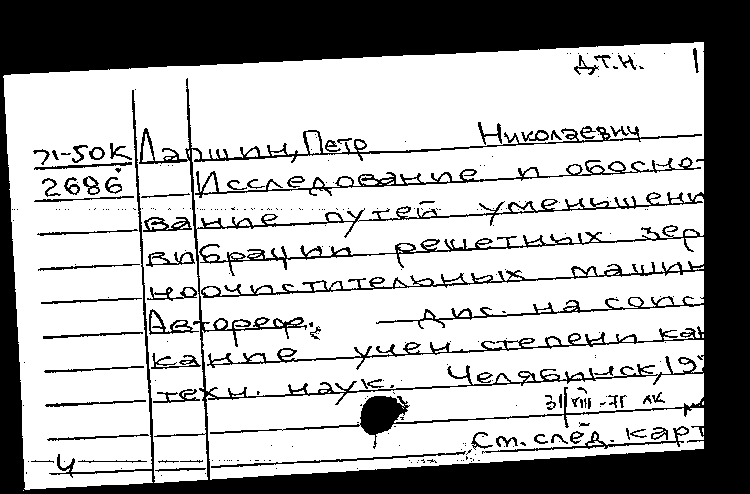 Д.Т.Н. 1
71-50К Ларшин, Петр Николаевич
2686 Исследование и обосно-
вание путей уменьшени
вибрации решетных зер
ноочистительных машин
Автореф. дис. на соис-
кание учен. степени кан
техн. наук. Челябинск, 19
31/VIII-71 ЛК
См. след. карт
4